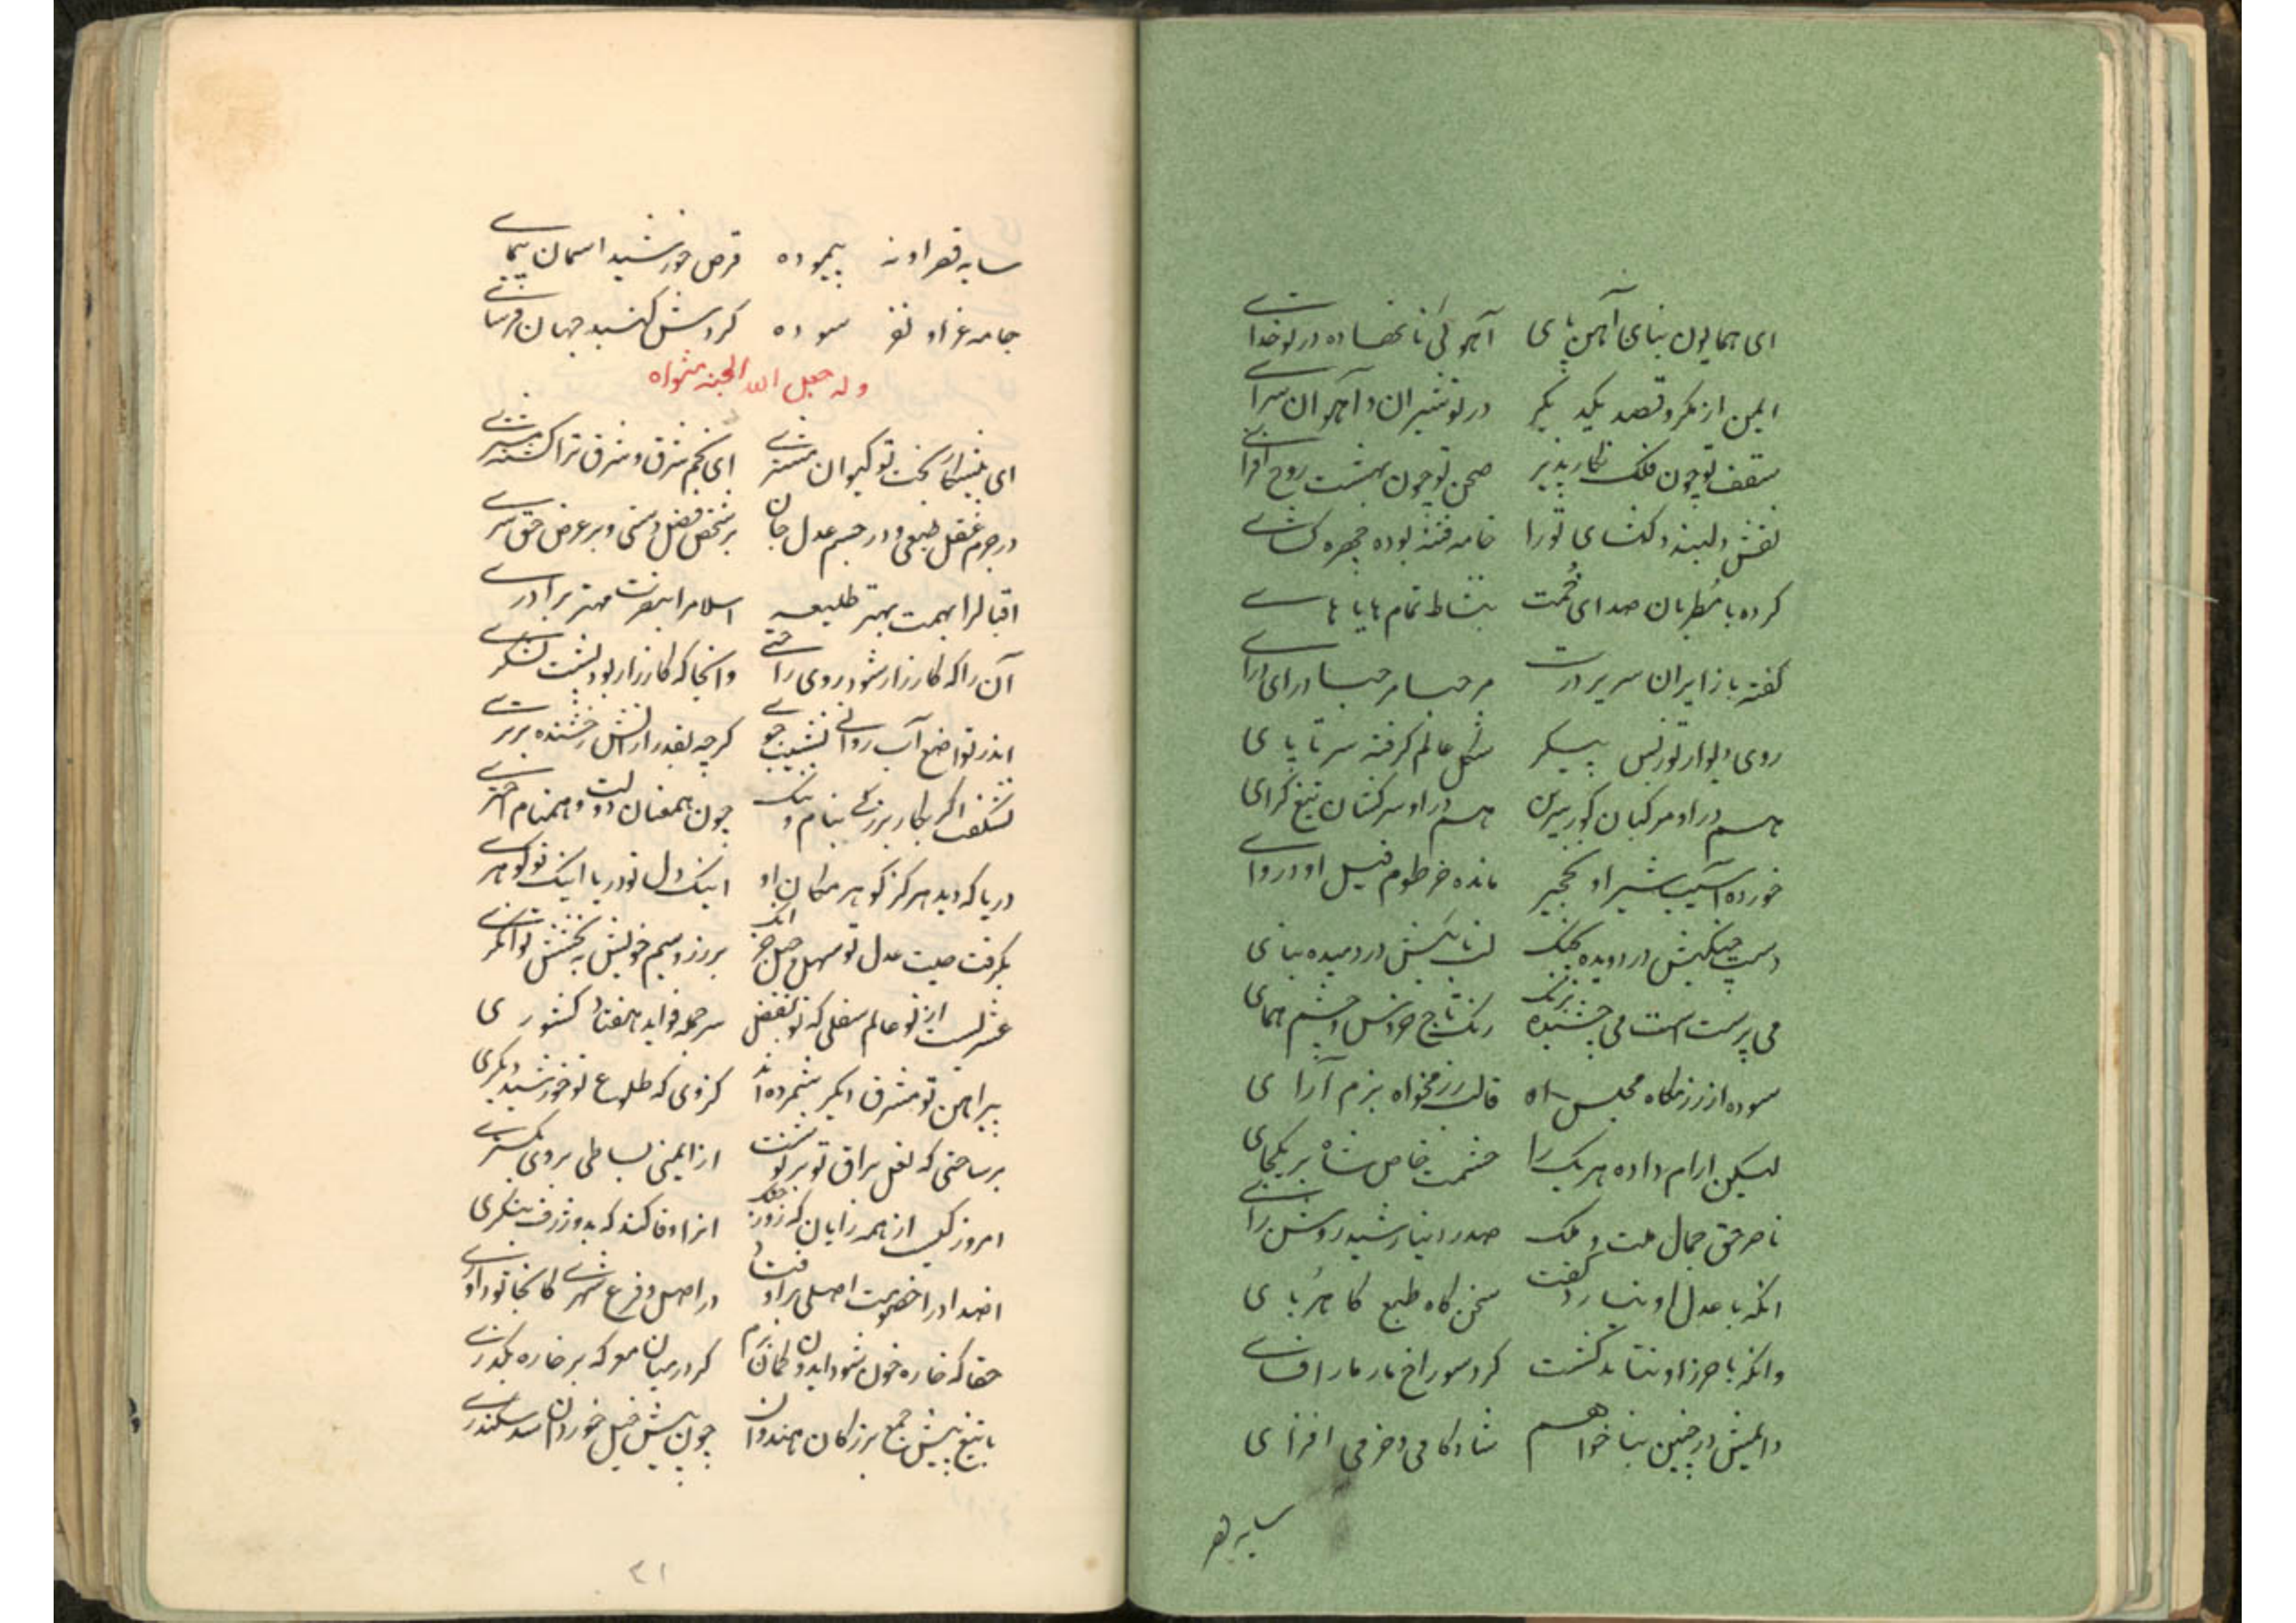 ای همایون بنای آهن پای آهوئی نانهاده در تو خدای
ایمن از مکر و قصد یکدیگر در تو شیران و آهوان سرای
سقف تو چون فلک نگارپذیر صحن تو چون بهشت روح افزای
نقش دلبند و دلگشای تو را خامه فتنه بوده چهره گشای
کرده با مطربان صدای خُمت بنشاط تمام هایا های
گفته باز ایران سریر درت مرحبا مرحبا درای درای
روی دیوار تو ز بس پیکر شکل عالم گرفته سر تا پای
هم در او مرکبان گوربرین هم در او سرکشان تیغ گرای
خورده آسیب شیر او نخجیر مانده خرطوم فیل او دروای
دست چنگیش در دویده بچنگ لب نائیش در دمیده بنای
می پرست است می چشنده بزنگ رنگ تاج خروس و چشم همای
سوده از رزمگاه مجلس او قالب رزمخواه بزم آرای
لیکن ارام داده هر یک را حشمت خاص شاه بر یکجای
ناصر حق جمال ملت و ملک صدر دنیا رشید روشن رای
انکه با عدل او نیارد گفت سخن کاه طبع کاهربای
وانکه با حرز او نتاند گشت گرد سوراخ مار مار افسای
دایمش در چنین بنا خواهم شادکامی و خرمی افزای
سایه قصر
سایه قصر او نه پیموده قرص خورشید اسمان پیمای
جامه عز او نفرسوده گردش گنبد جهان فرسای
وله جعل الله الجنه مثواه
ای پیشکار بخت تو کیوان و مشتری ای نجم شرق و شرق ترا گشته مشتری
در جرم عقل طبعی و در جسم عدل جان بر شخص فضل دستی و بر عرض حق سری
اقبال را بهمت بهتر طلیعه اسلام را بنصرت مهتر برادری
آن را که کارزار شود روی راحتی وانجا که کارزار بود پشت لشکری
اندر تواضع آب روانی نشیب جوی گرچه بقدر از آتش رخشنده برتری
نشگفت اگر بکار بزرگی بنام نیک چون همعنان دولت و همنام اختری
دریا که دید هرگز گوهر مکان او اینک دل تو دریا اینک تو گوهری
بگرفت صیت عدل تو سهل و جبل جز انک بر زر و سیم خویش به بخشش توانگری
عشریست از تو عالم سفلی که تو بفضل سر جمله فواید هفتاد کشوری
پیراهن تو مشرق دیگر شمرده اند کز وی که طلوع تو خورشید دیگری
بر ساحتی که نعل براق تو بر نوشت از ایمنی بساطی بر وی بگستری
امروز کیست از همه رایان که روز جنگ انرا وفا کند که بدو ژرف بنگری
اضداد را خصومت اصلی براوفتد در اصل و فرع شهری کانجا تو داوری
حقا که خاره خون شود ایدون گمان برم گر در میان معرکه بر خاره بگذری
با تیغ پیش جمع بزرگان هندوان چون پیش خیل خوردان سد سکندری
۳۱